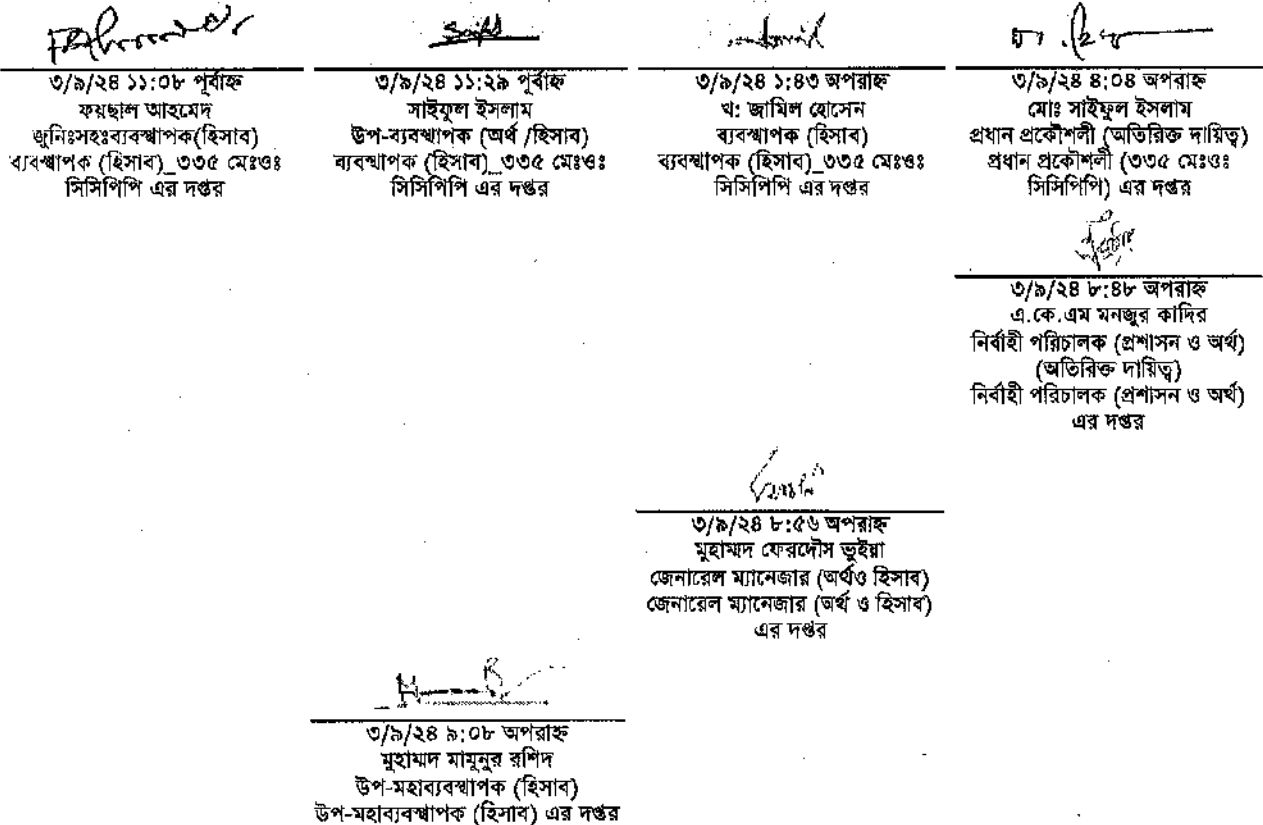 ৩/৯/২৪ ১১:০৮ পূর্বাহ্ন
ফয়ছাল আহমেদ
জুনিঃসহঃব্যবস্থাপক(হিসাব)
ব্যবস্থাপক (হিসাব)_৩৩৫ মেঃওঃ
সিসিপিপি এর দপ্তর
৩/৯/২৪ ১১:২৯ পূর্বাহ্ন
সাইফুল ইসলাম
উপ-ব্যবস্থাপক (অর্থ /হিসাব)
ব্যবস্থাপক (হিসাব)_৩৩৫ মেঃওঃ
সিসিপিপি এর দপ্তর
৩/৯/২৪ ১:৪৩ অপরাহ্ন
খ: জামিল হোসেন
ব্যবস্থাপক (হিসাব)
ব্যবস্থাপক (হিসাব)_৩৩৫ মেঃওঃ
সিসিপিপি এর দপ্তর
৩/৯/২৪ ৪:০৪ অপরাহ্ন
মোঃ সাইফুল ইসলাম
প্রধান প্রকৌশলী (অতিরিক্ত দায়িত্ব)
প্রধান প্রকৌশলী (৩৩৫ মেঃওঃ
সিসিপিপি) এর দপ্তর
৩/৯/২৪ ৮:৪৮ অপরাহ্ন
এ.কে.এম মনজুর কাদির
নির্বাহী পরিচালক (প্রশাসন ও অর্থ)
(অতিরিক্ত দায়িত্ব)
নির্বাহী পরিচালক (প্রশাসন ও অর্থ)
এর দপ্তর
৩/৯/২৪ ৮:৫৬ অপরাহ্ন
মুহাম্মদ ফেরদৌস ভুইয়া
জেনারেল ম্যানেজার (অর্থও হিসাব)
জেনারেল ম্যানেজার (অর্থ ও হিসাব)
এর দপ্তর
৩/৯/২৪ ৯:০৮ অপরাহ্ন
মুহাম্মদ মামুনুর রশিদ
উপ-মহাব্যবস্থাপক (হিসাব)
উপ-মহাব্যবস্থাপক (হিসাব) এর দপ্তর